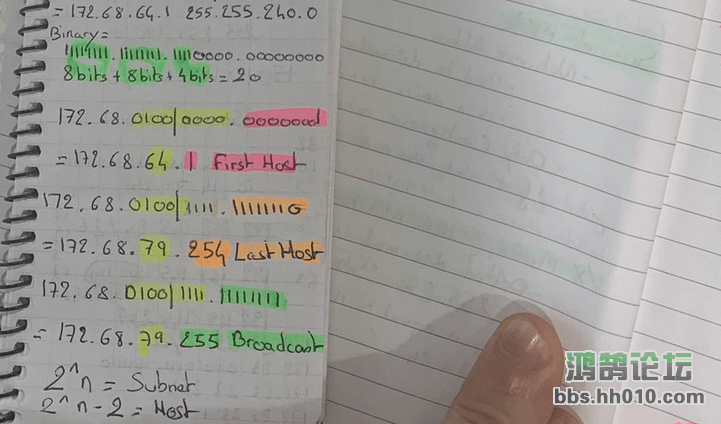 = 172.68.64.1 255.255.240.0
Binary=
11111111.11111111.11110000.00000000
8bits + 8bits + 4bits = 20
172.68.0100|0000.00000001
= 172.68.64.1 First Host
172.68.0100|1111.11111110
= 172.68.79.254 Last Host
172.68.0100|1111.11111111
= 172.68.79.255 Broadcast
2^n = Subnet
2^n-2 = Host
鸿鹄论坛
bbs.hh010.com